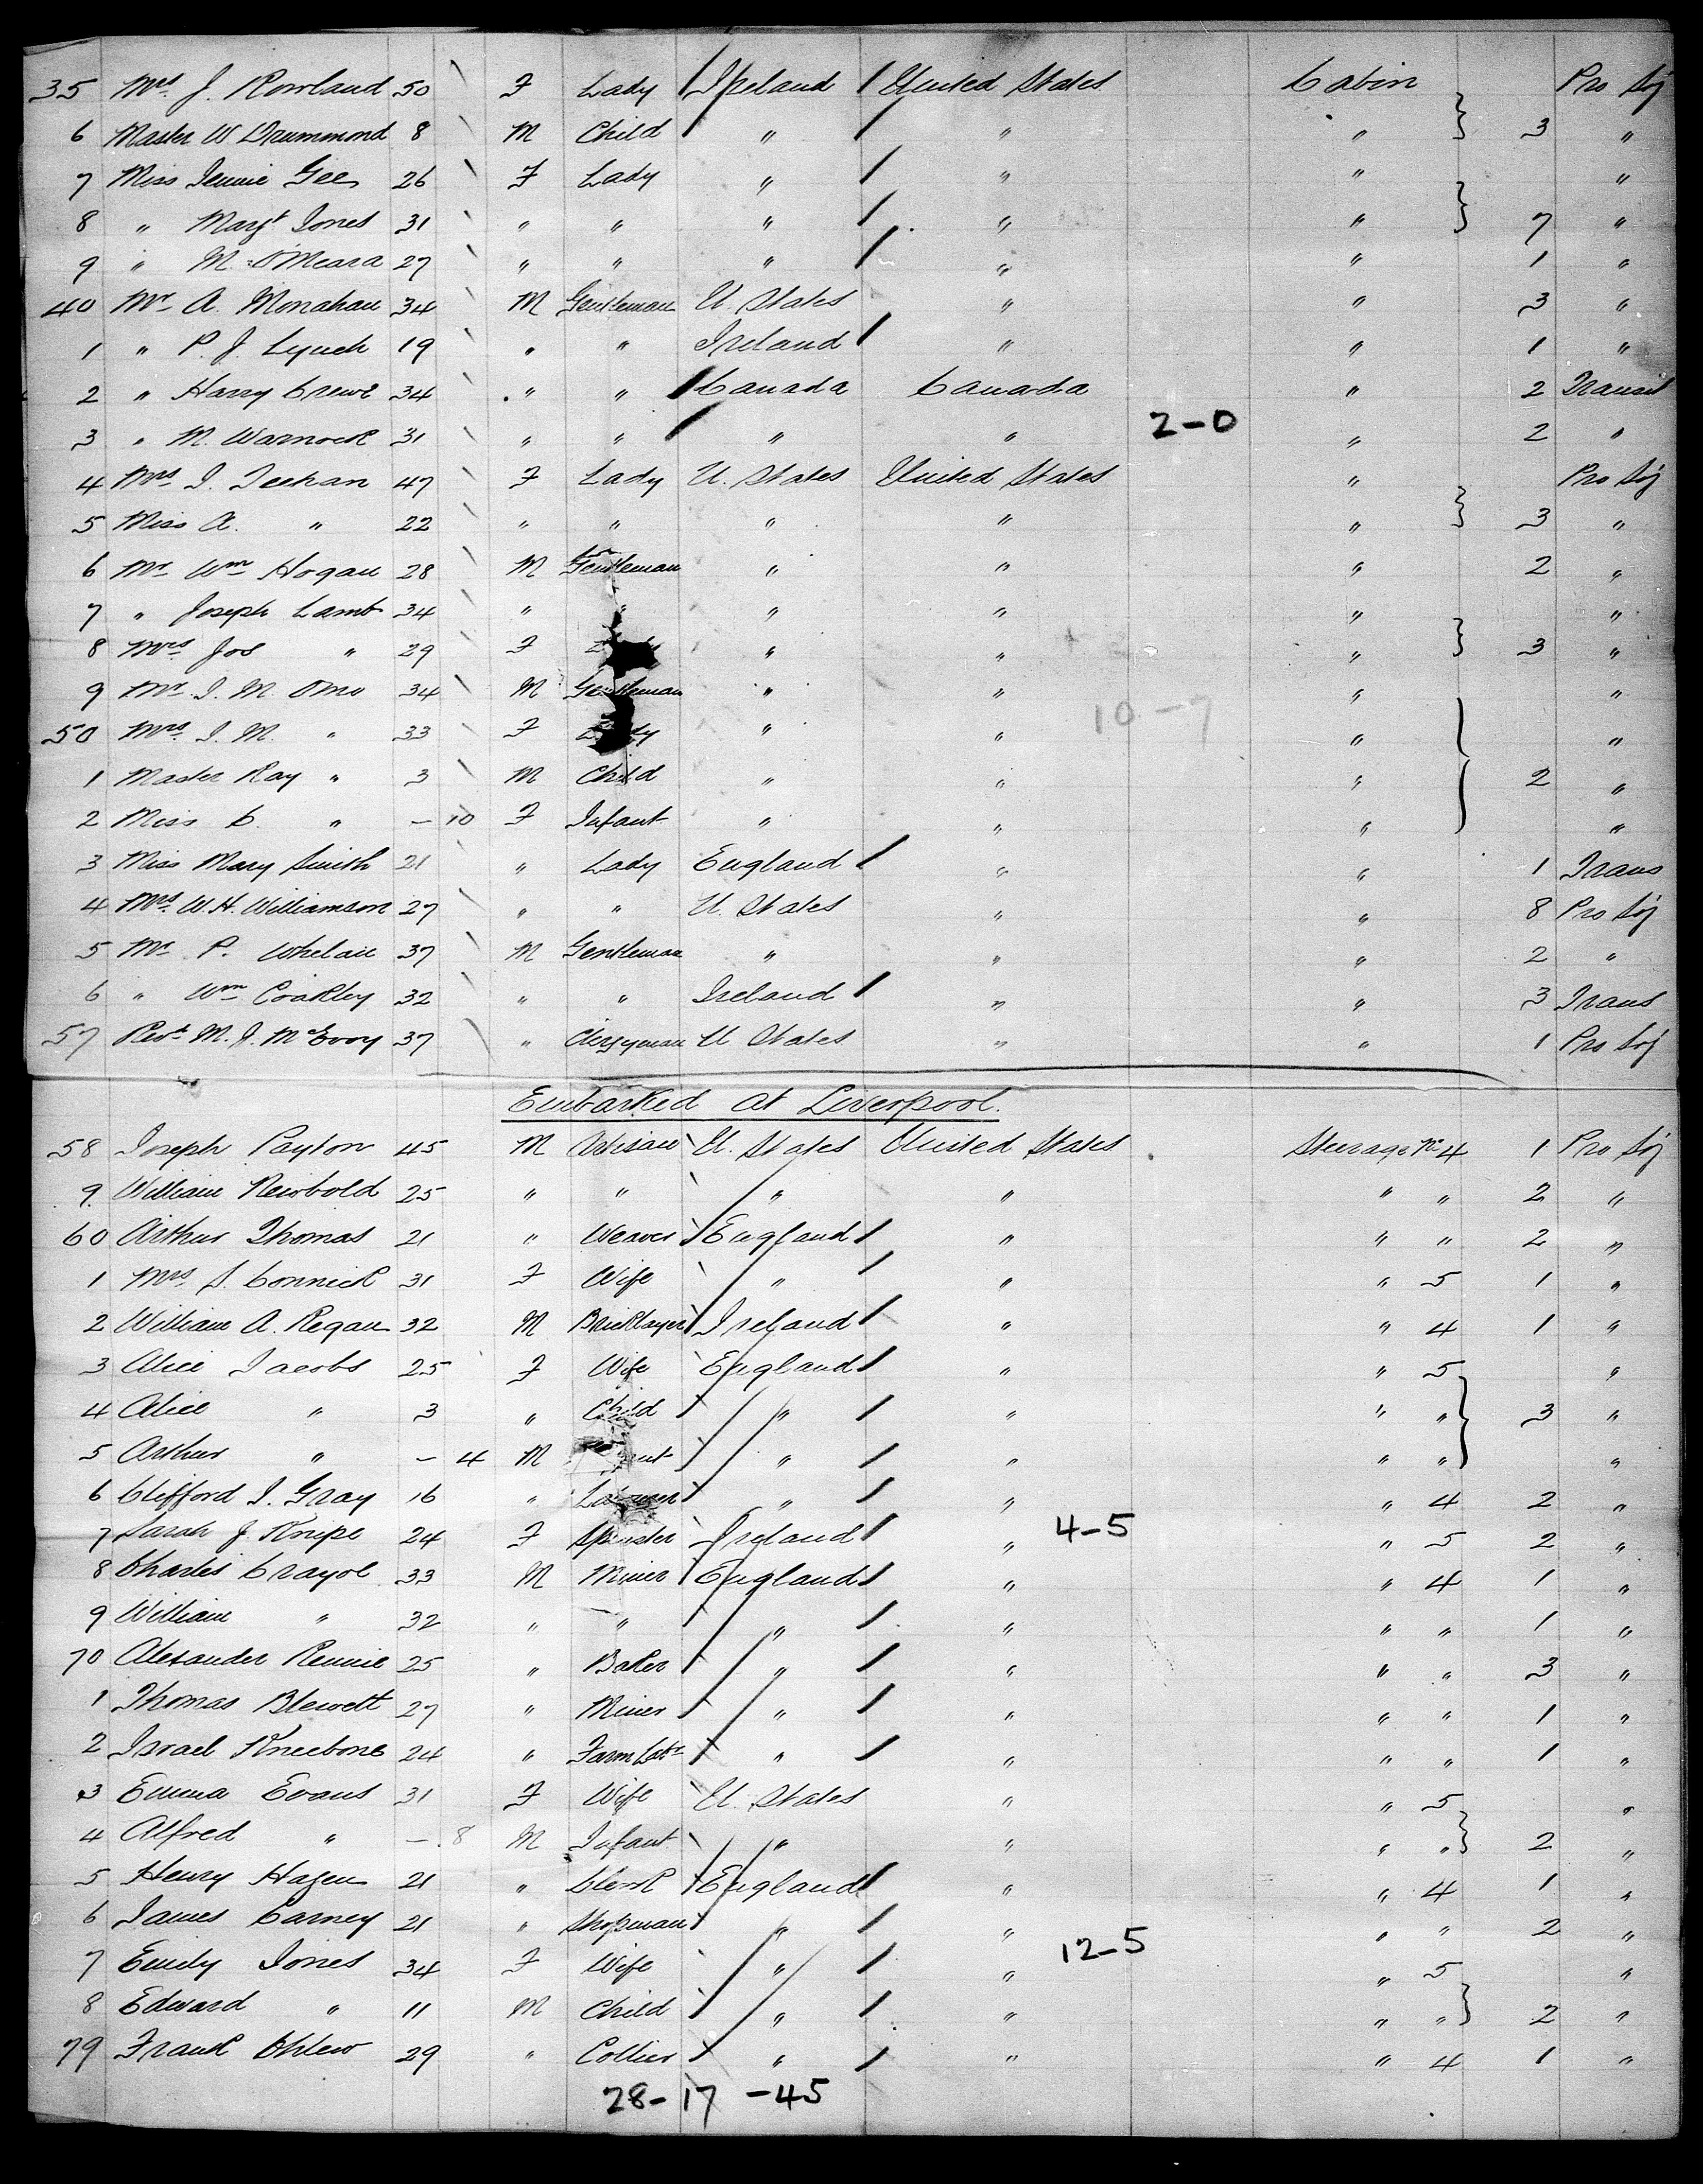 35 Mrs. J. Rowland 50 F Lady Ireland United States Cabin Pro Soj
6 Master W Drummond 8 M Child " " " 3 "
7 Miss Jennie Gee 26 F Lady " " " "
8 " Margt Jones 31 " " " " " 7 "
9 " M. O'Meara 27 " " " " " 1 "
40 Mr A. Monahan 34 M Gentleman U. States " " 3 "
1 " P. J. Lynch 19 " " Ireland " " 1 "
2 " Harry Crewe 34 " " Canada Canada " 2 Transit
3 " M. Warnock 31 " " " " 2-0 " 2 "
4 Mrs J. Teehan 47 F Lady U. States United States " Pro Soj
5 Miss A. " 22 " " " " " 3 "
6 Mr Wm Hogan 28 M Gentleman " " " 2 "
7 " Joseph Lamb 34 " " " " " "
8 Mrs Jos " 29 F " " " 3 "
9 Mr. J. M. 34 M Gentleman " " " "
50 Mrs. J. M. " 33 F Lady " " 10-7 " "
1 Master Ray " 3 M Child " " " 2 "
2 Miss C. " - 10 F Infant " " " "
3 Miss Mary Smith 21 " Lady England " " 1 Trans
4 Mrs. W. H. Williamson 27 " " U. States " " 8 Pro Soj
5 Mr P. Whelan 37 M Gentleman " " " 2 "
6 " Wm Coakley 32 " " Ireland " " 3 Trans
57 Revd M. J. McEvoy 37 " Clergyman U States " " 1 Pro Soj
Embarked at Liverpool.
58 Joseph Payton 45 M Artisan U. States United States Steerage No 4 1 Pro Soj
9 William Newbold 25 " " " " " " 2 "
60 Arthur Thomas 21 " Weaver England " " " 2 "
1 Mrs S. Connick 31 F Wife " " " 5 1 "
2 William A. Regan 32 M Bricklayer Ireland " " 4 1 "
3 Alice Jacobs 25 F Wife England " " 5 "
4 Alice " 3 " Child " " " " 3 "
5 Arthur " - 4 M " " " " "
6 Clifford J. Gray 16 " " " " 4 2 "
7 Sarah J. Knipe 24 F Spinster Ireland " 4-5 " 5 2 "
8 Charles 33 M Miner England " " 4 1 "
9 William " 32 " " " " " " 1 "
70 Alexander Rennie 25 " Baker " " " " 3 "
1 Thomas Blewett 27 " Miner " " " " 1 "
2 Israel Kneebone 24 " Farm Labr " " " " 1 "
3 Emma Evans 31 F Wife U. States " " 5 "
4 Alfred " - 8 M Infant " " " " 2 "
5 Henry Hazen 21 " Clerk England " " 4 1 "
6 James Carney 21 " Shopman " " " " 2 "
7 Emily Jones 34 F Wife " " 12-5 " 5 "
8 Edward " 11 M Child " " " " 2 "
79 Frank 29 " Collier " " " 4 1 "
28-17 -45